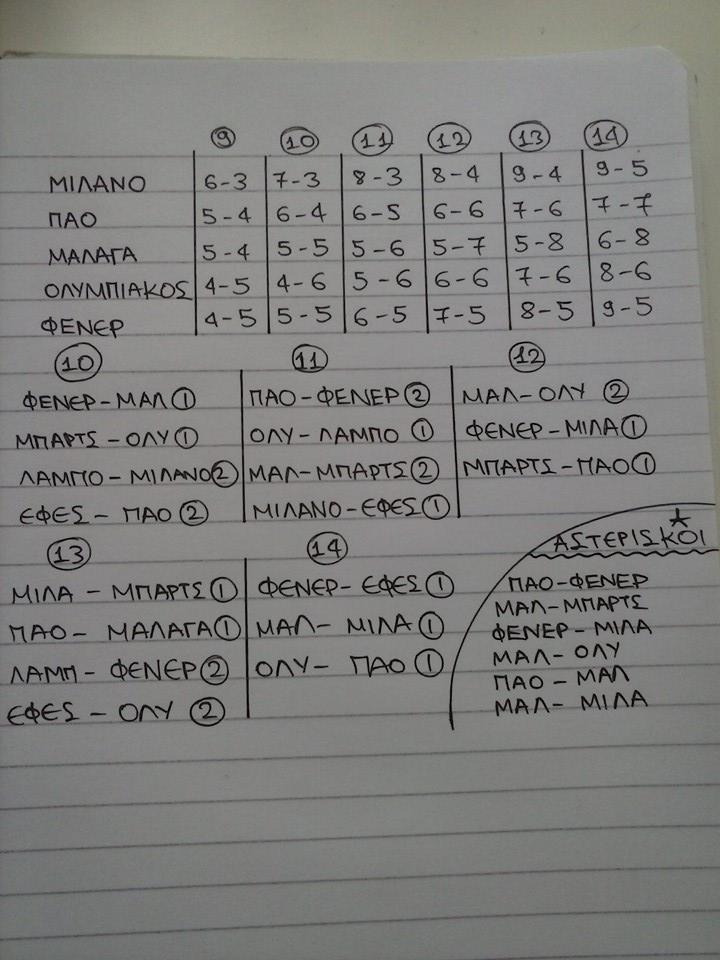 9 10 11 12 13 14
ΜΙΛΑΝΟ 6-3 7-3 8-3 8-4 9-4 9-5
ΠΑΟ 5-4 6-4 6-5 6-6 7-6 7-7
ΜΑΛΑΓΑ 5-4 5-5 5-6 5-7 5-8 6-8
ΟΛΥΜΠΙΑΚΟΣ 4-5 4-6 5-6 6-6 7-6 8-6
ΦΕΝΕΡ 4-5 5-5 6-5 7-5 8-5 9-5
10
ΦΕΝΕΡ-ΜΑΛ 1
ΜΠΑΡΤΣ-ΟΛΥ 1
ΛΑΜΠΟ-ΜΙΛΑΝΟ 2
ΕΦΕΣ-ΠΑΟ 2
11
ΠΑΟ-ΦΕΝΕΡ 2
ΟΛΥ-ΛΑΜΠΟ 1
ΜΑΛ-ΜΠΑΡΤΣ 2
ΜΙΛΑΝΟ-ΕΦΕΣ 1
12
ΜΑΛ-ΟΛΥ 2
ΦΕΝΕΡ-ΜΙΛΑ 1
ΜΠΑΡΤΣ-ΠΑΟ 1
13
ΜΙΛΑ - ΜΠΑΡΤΣ 1
ΠΑΟ - ΜΑΛΑΓΑ 1
ΛΑΜΠ - ΦΕΝΕΡ 2
ΕΦΕΣ - ΟΛΥ 2
14
ΦΕΝΕΡ-ΕΦΕΣ 1
ΜΑΛ- ΜΙΛΑ 1
ΟΛΥ- ΠΑΟ 1
ΑΣΤΕΡΙΣΚΟΙ
ΠΑΟ-ΦΕΝΕΡ
ΜΑΛ-ΜΠΑΡΤΣ
ΦΕΝΕΡ-ΜΙΛΑ
ΜΑΛ-ΟΛΥ
ΠΑΟ-ΜΑΛ
ΜΑΛ- ΜΙΛΑ